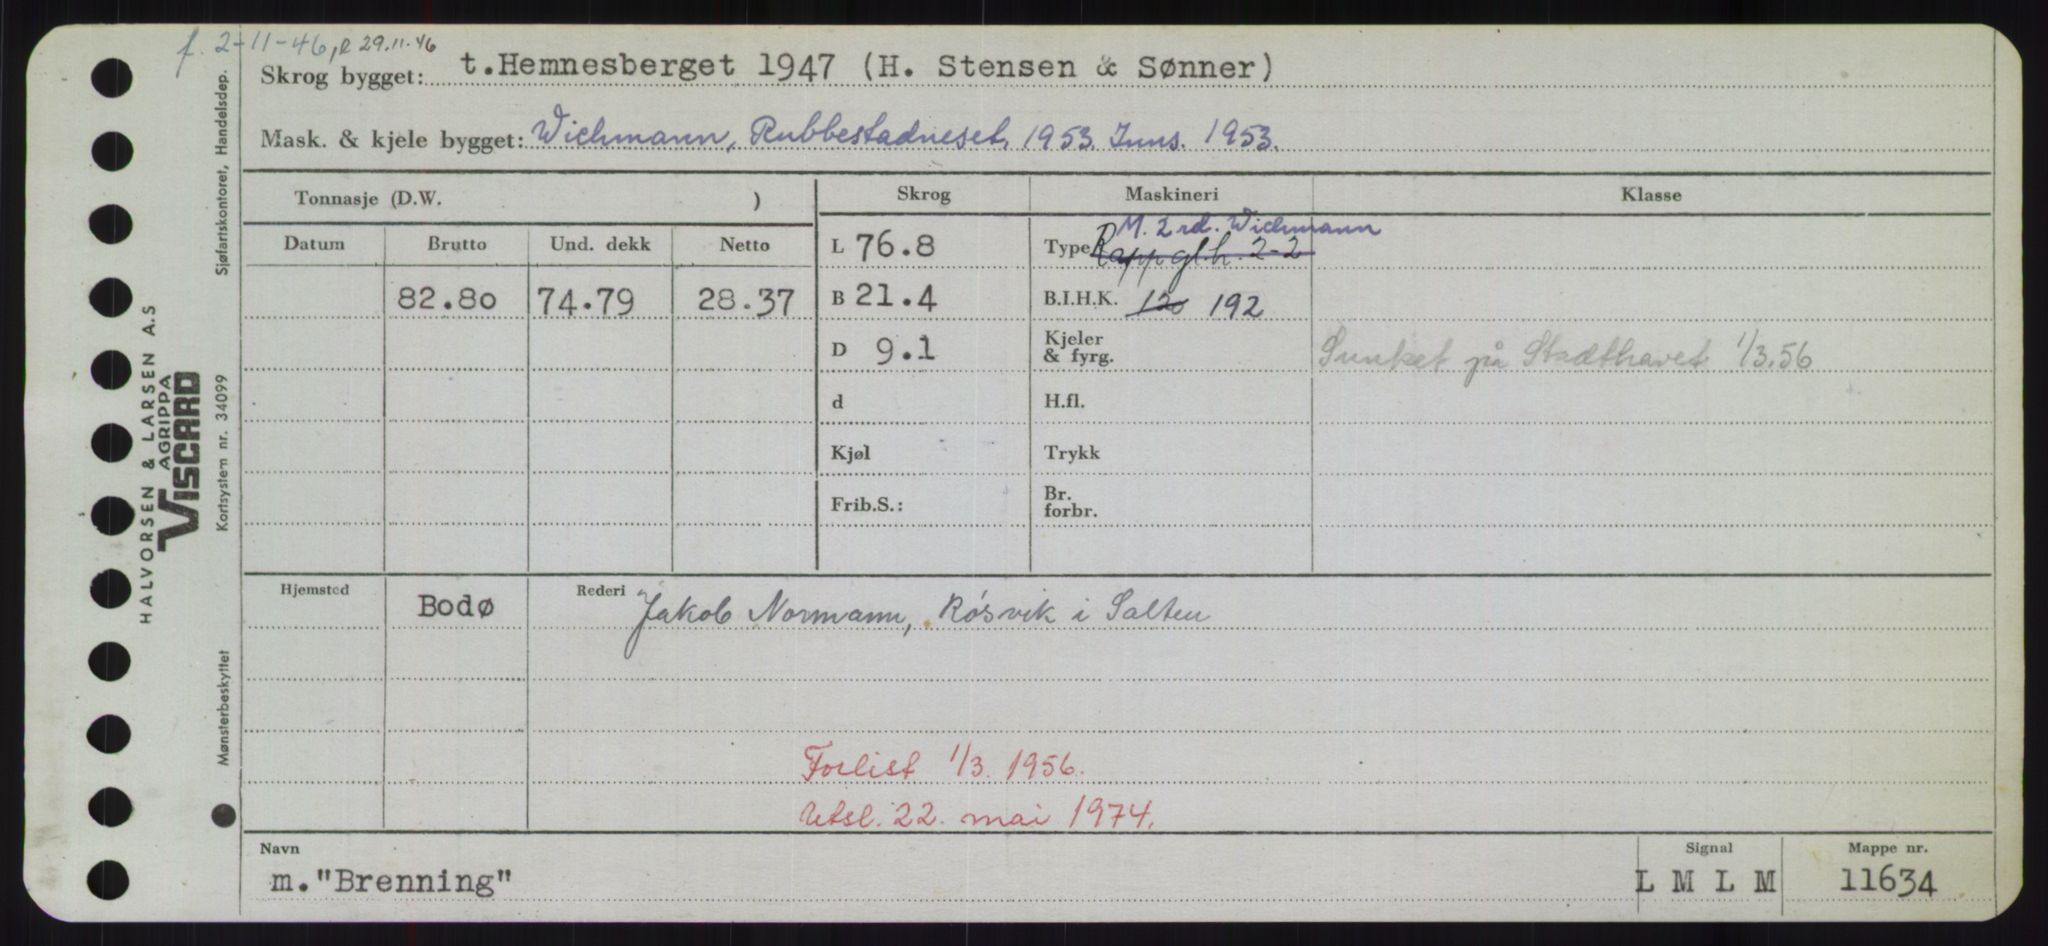 f. 2-11-46, R 29.11.46
Skrog bygget: t. Hemnesberget 1947 (H. Stensen & Sønner)
Mask. & kjele bygget: Wichmann, Rubbestadneset, 1953. Inns. 1953.
Tonnasje (D.W. )
Skrog Maskineri Klasse
Datum Brutto Und. dekk Netto
82.80 74.79 28.37
L 76.8
B 21.4
D 9.1
d
Kjøl
Frib.S.:
M. 2 rd. Wichmann
Type Rapp gl.h. 2-2
B.I.H.K. 120 192
Kjeler
& fyrg.
H.fl.
Trykk
Br.
forbr.
Sunket på Stadthavet 1/3.56
Hjemsted Bodø
Rederi Jakob Normann, Røsvik i Salten
Forlist 1/3. 1956.
Utsl. 22. mai 1974.
Navn
m."Brenning"
Signal
L M L M
Mappe nr.
11634
HALVORSEN & LARSEN A.S
AGRIPPA
VISCARD
Sjøfartskontoret, Handelsdep.
Kortsystem nr. 34099
Mønsterbeskyttet